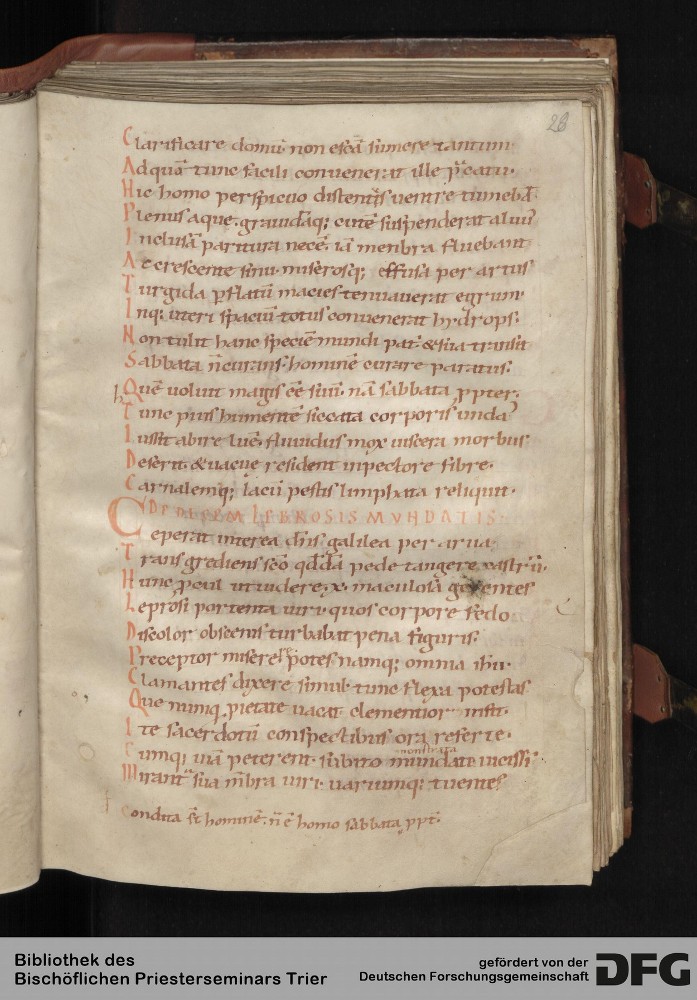 28
Clarificare domū non escā sumere tantum.
Ad quā tunc facili convenerat ille p̄catu.
Hic homo perspicuo distentus ventre tumebat.
Plenus aque. gravidaq; cutē suspenderat alvū
Inclusā paritura necē. iā menbra fluebant
Accrescente sinu. miserosq; effusa per artus
Turgida pflatū macies tenuaverat egrum.
Inq; uteri spaciū totus convenerat hydrops.
Non tulit hanc speciē mundi pat̄ & sua transit
Sabbata n̄ curans. hominē curare paratus.
h Quē voluit magis eē suū. nā sabbata ppter.
Tunc pius humentē siccata corporis unda
Iussit abire luē. fluvidus mox viscera morbus
Deserit. & vacue resident in pectore fibre.
Carnalemq; lacū pestis limphata reliquit.
DE DECEM LEPROSIS MUNDATIS
Ceperat interea dn̄s galilea per arva
Transgrediens sc̄o qddā pede tangere castrū.
Hunc pcul ut videre. x. maculosa gerentes
Leprosi portenta viri. quos corpore fedo
Discolor obscenis turbabat pena figuris.
Preceptor miserere potes namq; omnia ih̄u.
Clamantes dixere simul. tunc flexa potestas
Que numq. pietate vacat clementior infit.
Ite sacerdotū conspectibus ora referte.
Cumq; viā peterent. subito mundata vicissī
monstrata
Mirant̄ sua m̄bra viri. variumq; tuentes
Condita s̄t hominē. n̄ ē homo sabbata ppt̄.
Bibliothek des
Bischöflichen Priesterseminars Trier
gefördert von der
Deutschen Forschungsgemeinschaft
DFG